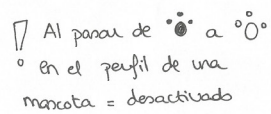 Al pasar de a
en el perfil de una
mascota = desactivado